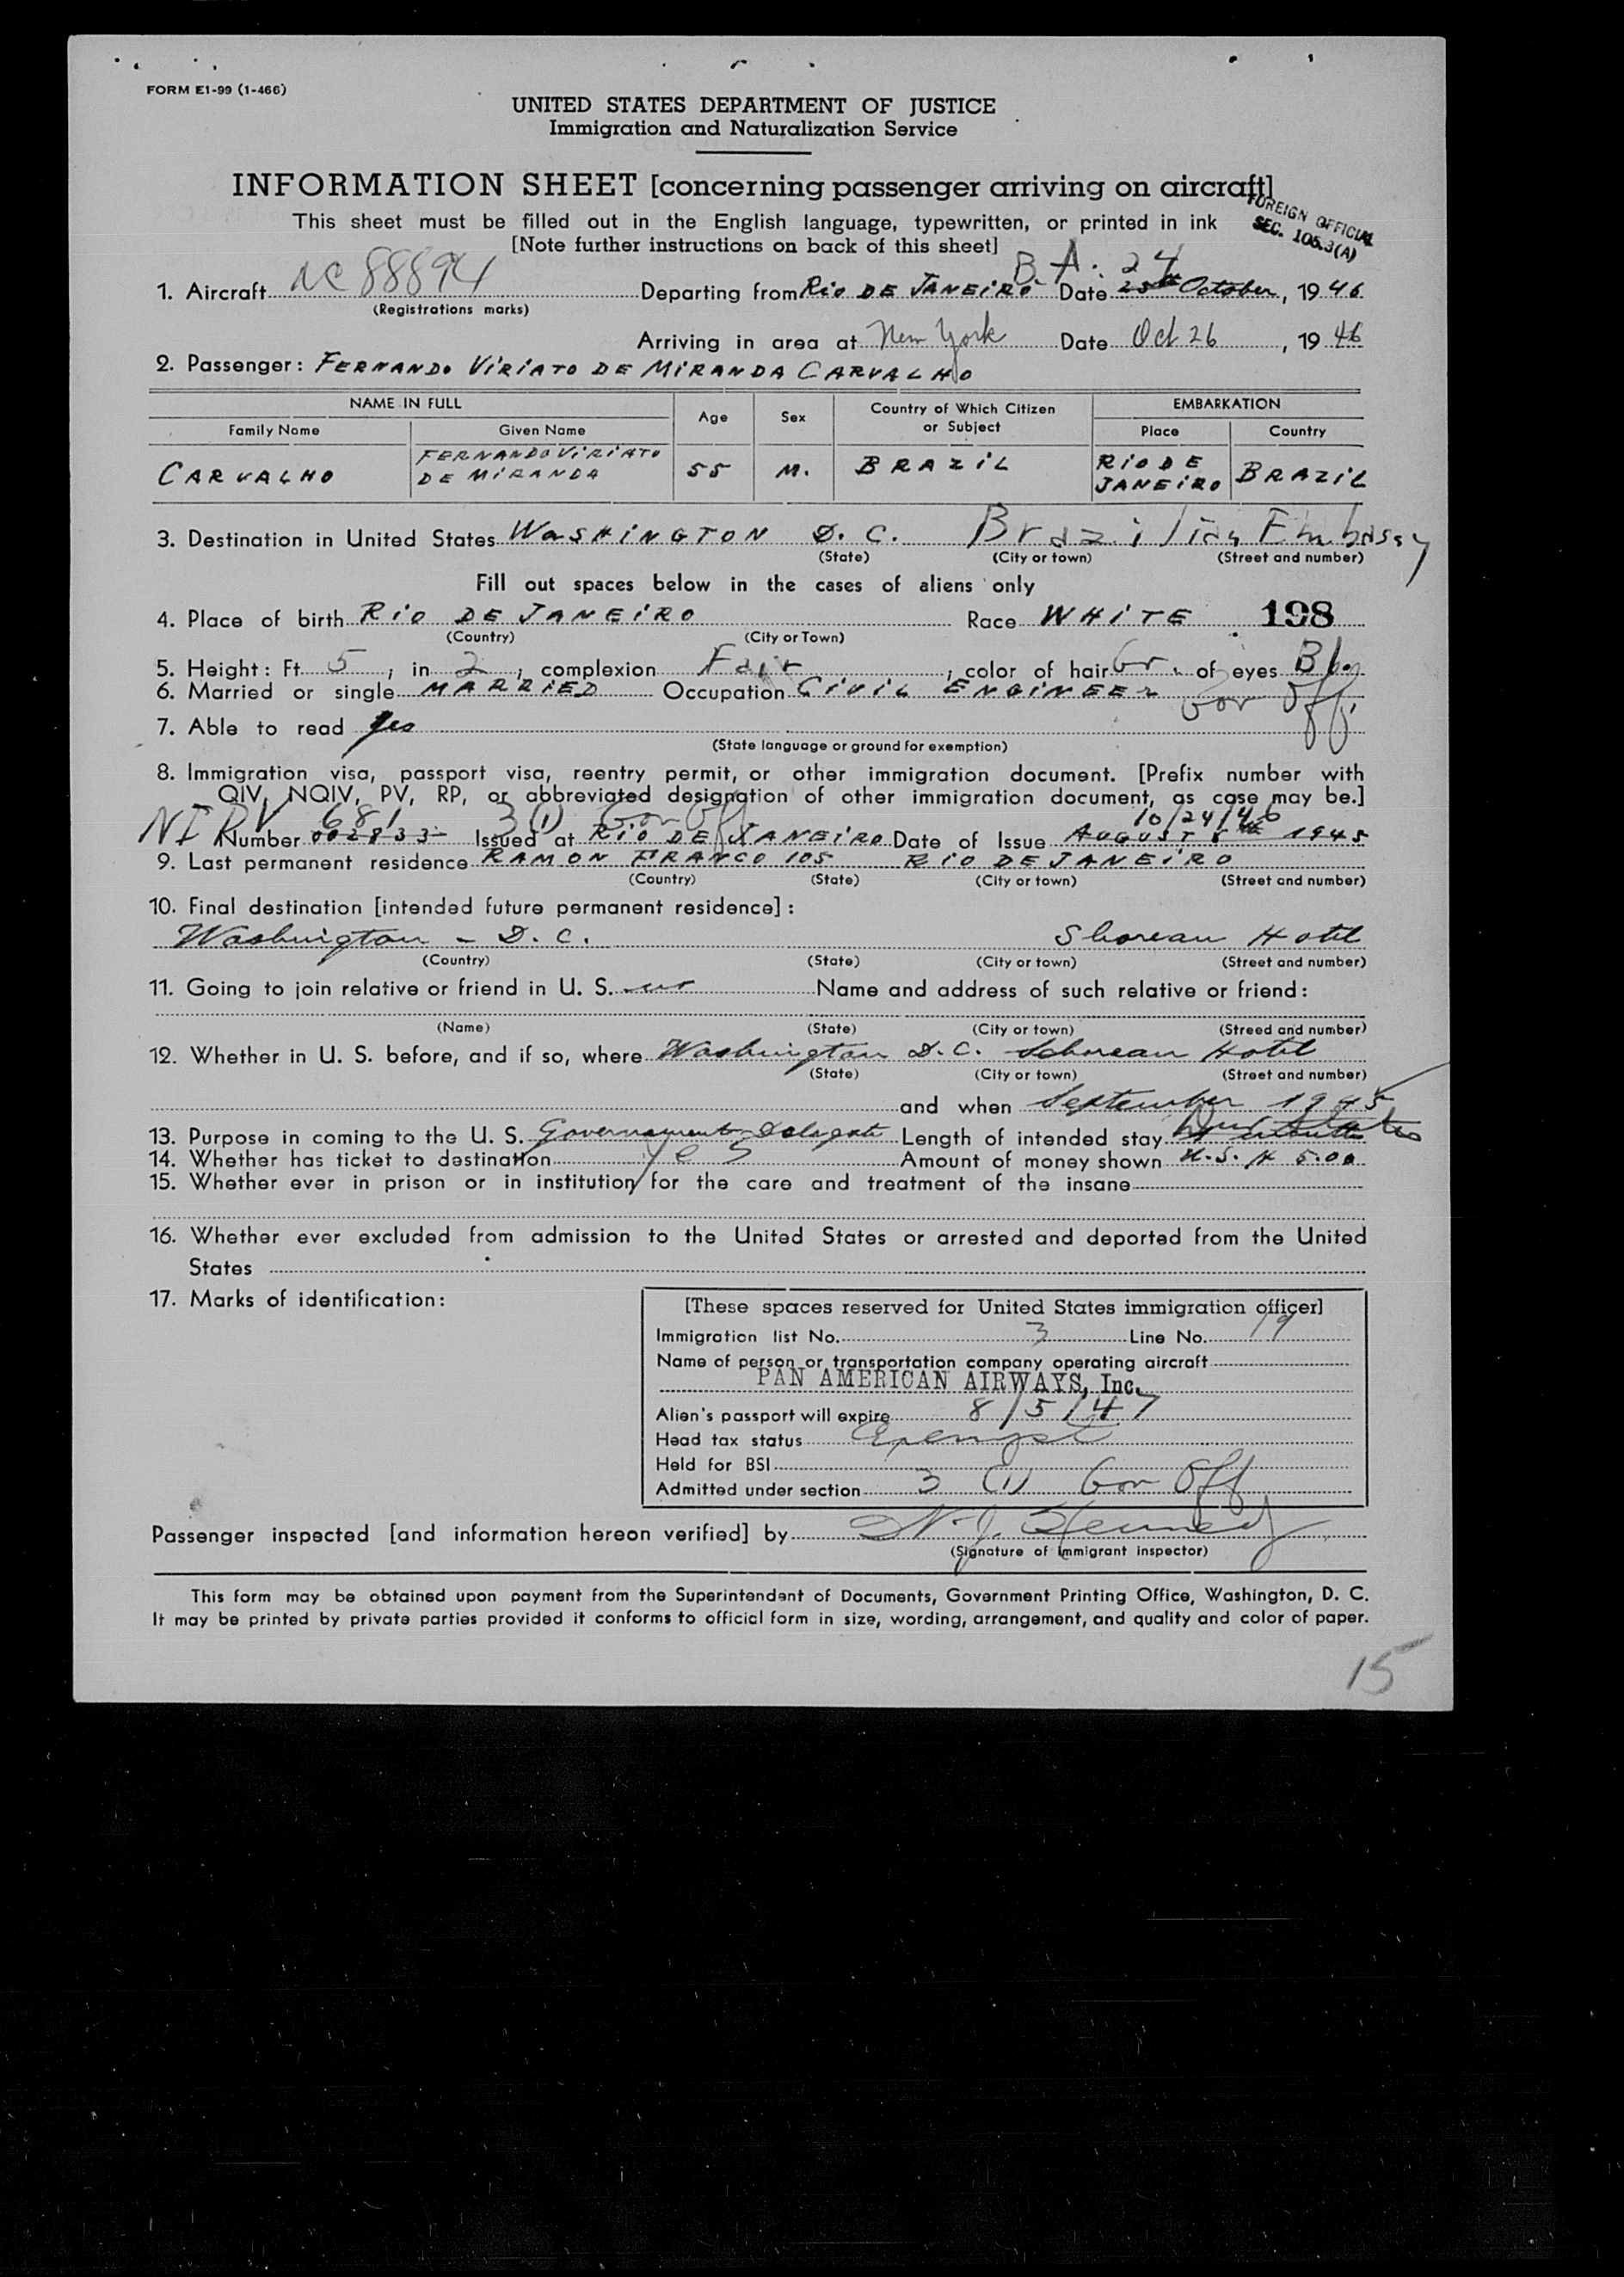 FORM E1-99 (1-466)
UNITED STATES DEPARTMENT OF JUSTICE
Immigration and Naturalization Service
INFORMATION SHEET [concerning passenger arriving on aircraft]
FOREIGN OFFICIAL
SEC. 105.3(A)
This sheet must be filled out in the English language, typewritten, or printed in ink
[Note further instructions on back of this sheet]
B. A. 24
1. Aircraft NC 88894 Departing from RiO DE JANEiRO Date 25th October, 1946
(Registrations marks)
Arriving in area at New York Date Oct 26, 1946
2. Passenger: FERNANDO ViRiATO DE MiRANDA CARVALHO
NAME IN FULL Age Sex Country of Which Citizen or Subject EMBARKATION
Family Name Given Name Place Country
CARVALHO FERNANDO ViRiATO DE MiRANDA 55 M. BRAZiL RiO DE JANEiRO BRAZiL
3. Destination in United States WaSHiNGTON D. C. Brazilian Embassy
(State) (City or town) (Street and number)
Fill out spaces below in the cases of aliens only
4. Place of birth RiO DE JANEiRO Race WHiTE 198
(Country) (City or Town)
5. Height: Ft. 5, in 2, complexion Fair, color of hair Gr. of eyes Bl.
6. Married or single MARRiED Occupation CiViL ENGiNEER Gov Off.
7. Able to read Yes
(State language or ground for exemption)
8. Immigration visa, passport visa, reentry permit, or other immigration document. [Prefix number with
QIV, NQIV, PV, RP, or abbreviated designation of other immigration document, as case may be.]
681 3 (1) Gov Off 10/24/46
Number 002833 Issued at RiO DE JANEiRO Date of Issue AUGUST 1945
9. Last permanent residence RAMON FRANCO 105 RiO DE JANEiRO
(Country) (State) (City or town) (Street and number)
10. Final destination [intended future permanent residence]:
Washington - D. C. Shorean Hotel
(Country) (State) (City or town) (Street and number)
11. Going to join relative or friend in U. S. no Name and address of such relative or friend:
(Name) (State) (City or town) (Streed and number)
12. Whether in U. S. before, and if so, where Washington D.C. Schorean Hotel
(State) (City or town) (Street and number)
and when September 1945
13. Purpose in coming to the U. S. Government Delegate Length of intended stay
14. Whether has ticket to destination yes Amount of money shown U.S. $ 5.00
15. Whether ever in prison or in institution for the care and treatment of the insane
16. Whether ever excluded from admission to the United States or arrested and deported from the United
States
17. Marks of identification:
[These spaces reserved for United States immigration officer]
Immigration list No. 3 Line No. 19
Name of person or transportation company operating aircraft
PAN AMERICAN AIRWAYS, Inc.
Alien's passport will expire 8/5/47
Head tax status Exempt
Held for BSI
Admitted under section 3 (1) Gov Off
Passenger inspected [and information hereon verified] by N. J. Kennedy
(Signature of Immigrant inspector)
This form may be obtained upon payment from the Superintendent of Documents, Government Printing Office, Washington, D. C.
It may be printed by private parties provided it conforms to official form in size, wording, arrangement, and quality and color of paper.
15